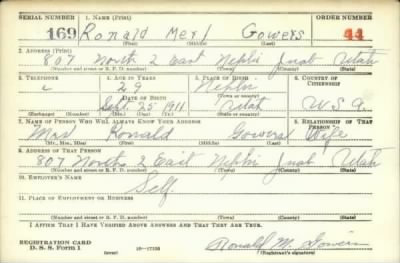 SERIAL NUMBER 1. NAME (Print) ORDER NUMBER
169 Ronald Merl Gowers 44
(First) (Middle) (Last)
2. ADDRESS (Print)
807 North 2 East Nephi Juab Utah
(Number and street or R. F. D. number) (Town) (County) (State)
3. TELEPHONE 4. AGE IN YEARS 5. PLACE OF BIRTH 6. COUNTRY OF CITIZENSHIP
29 Nephi
DATE OF BIRTH (Town or county)
Sept 25 1911 Utah U.S.A.
(Exchange) (Number) (Mo.) (Day) (Yr.) (State or country)
7. NAME OF PERSON WHO WILL ALWAYS KNOW YOUR ADDRESS 8. RELATIONSHIP OF THAT PERSON
Mrs Ronald Gowers Wife
(Mr., Mrs., Miss) (First) (Middle) (Last)
9. ADDRESS OF THAT PERSON
807 North 2 East Nephi Juab Utah
(Number and street or R. F. D. number) (Town) (County) (State)
10. EMPLOYER'S NAME
Self
11. PLACE OF EMPLOYMENT OR BUSINESS
(Number and street or R. F. D. number) (Town) (County) (State)
I AFFIRM THAT I HAVE VERIFIED ABOVE ANSWERS AND THAT THEY ARE TRUE.
REGISTRATION CARD
D. S. S. Form 1 (over) 16—17105 Ronald M. Gowers
(Registrant's signature)